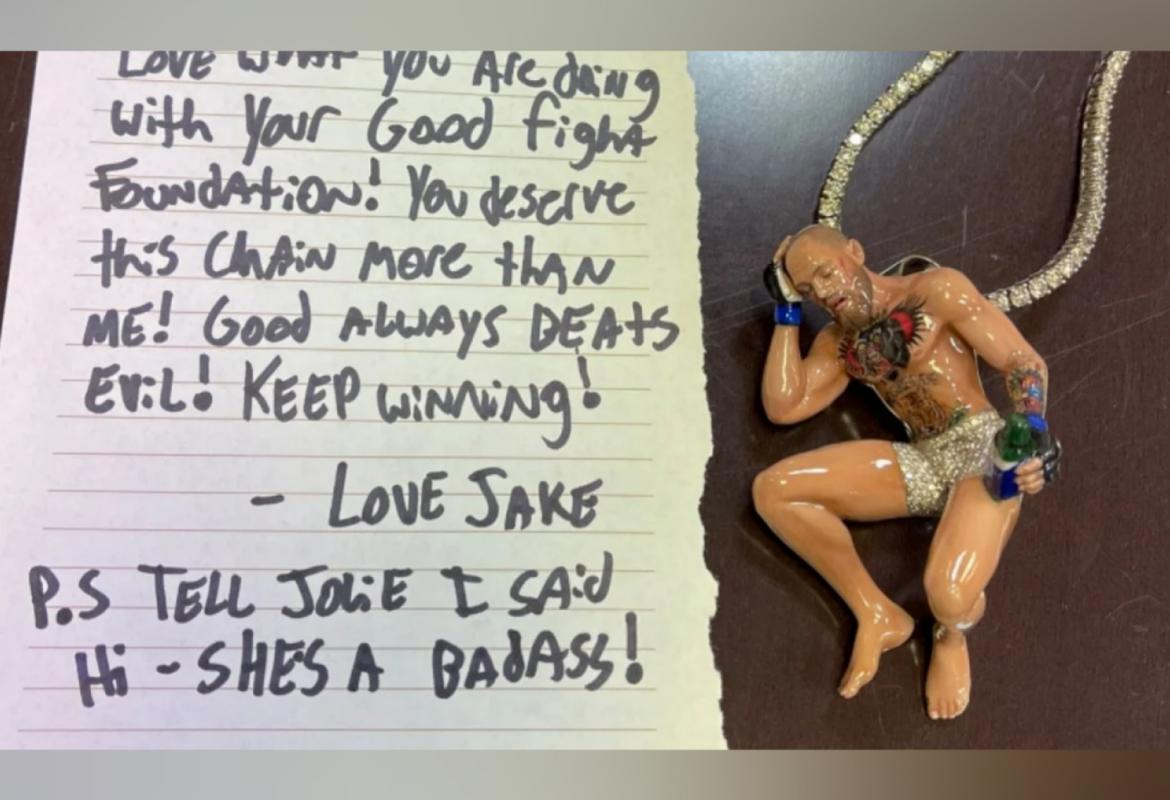 LOVE WHAT YOU Are doing
with Your Good fight
FOUNDAtiON! You deserve
this CHAiN More tHAN
ME! Good ALWAYS BEAtS
EViL! KEEP wiNNiNg!
- LOVE JAKE
P.S TELL JOLiE I SAid
Hi - SHE'S A BAdASS!